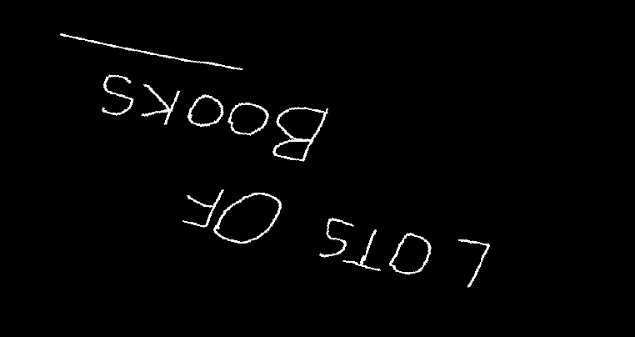 LOTS OF
BOOKS